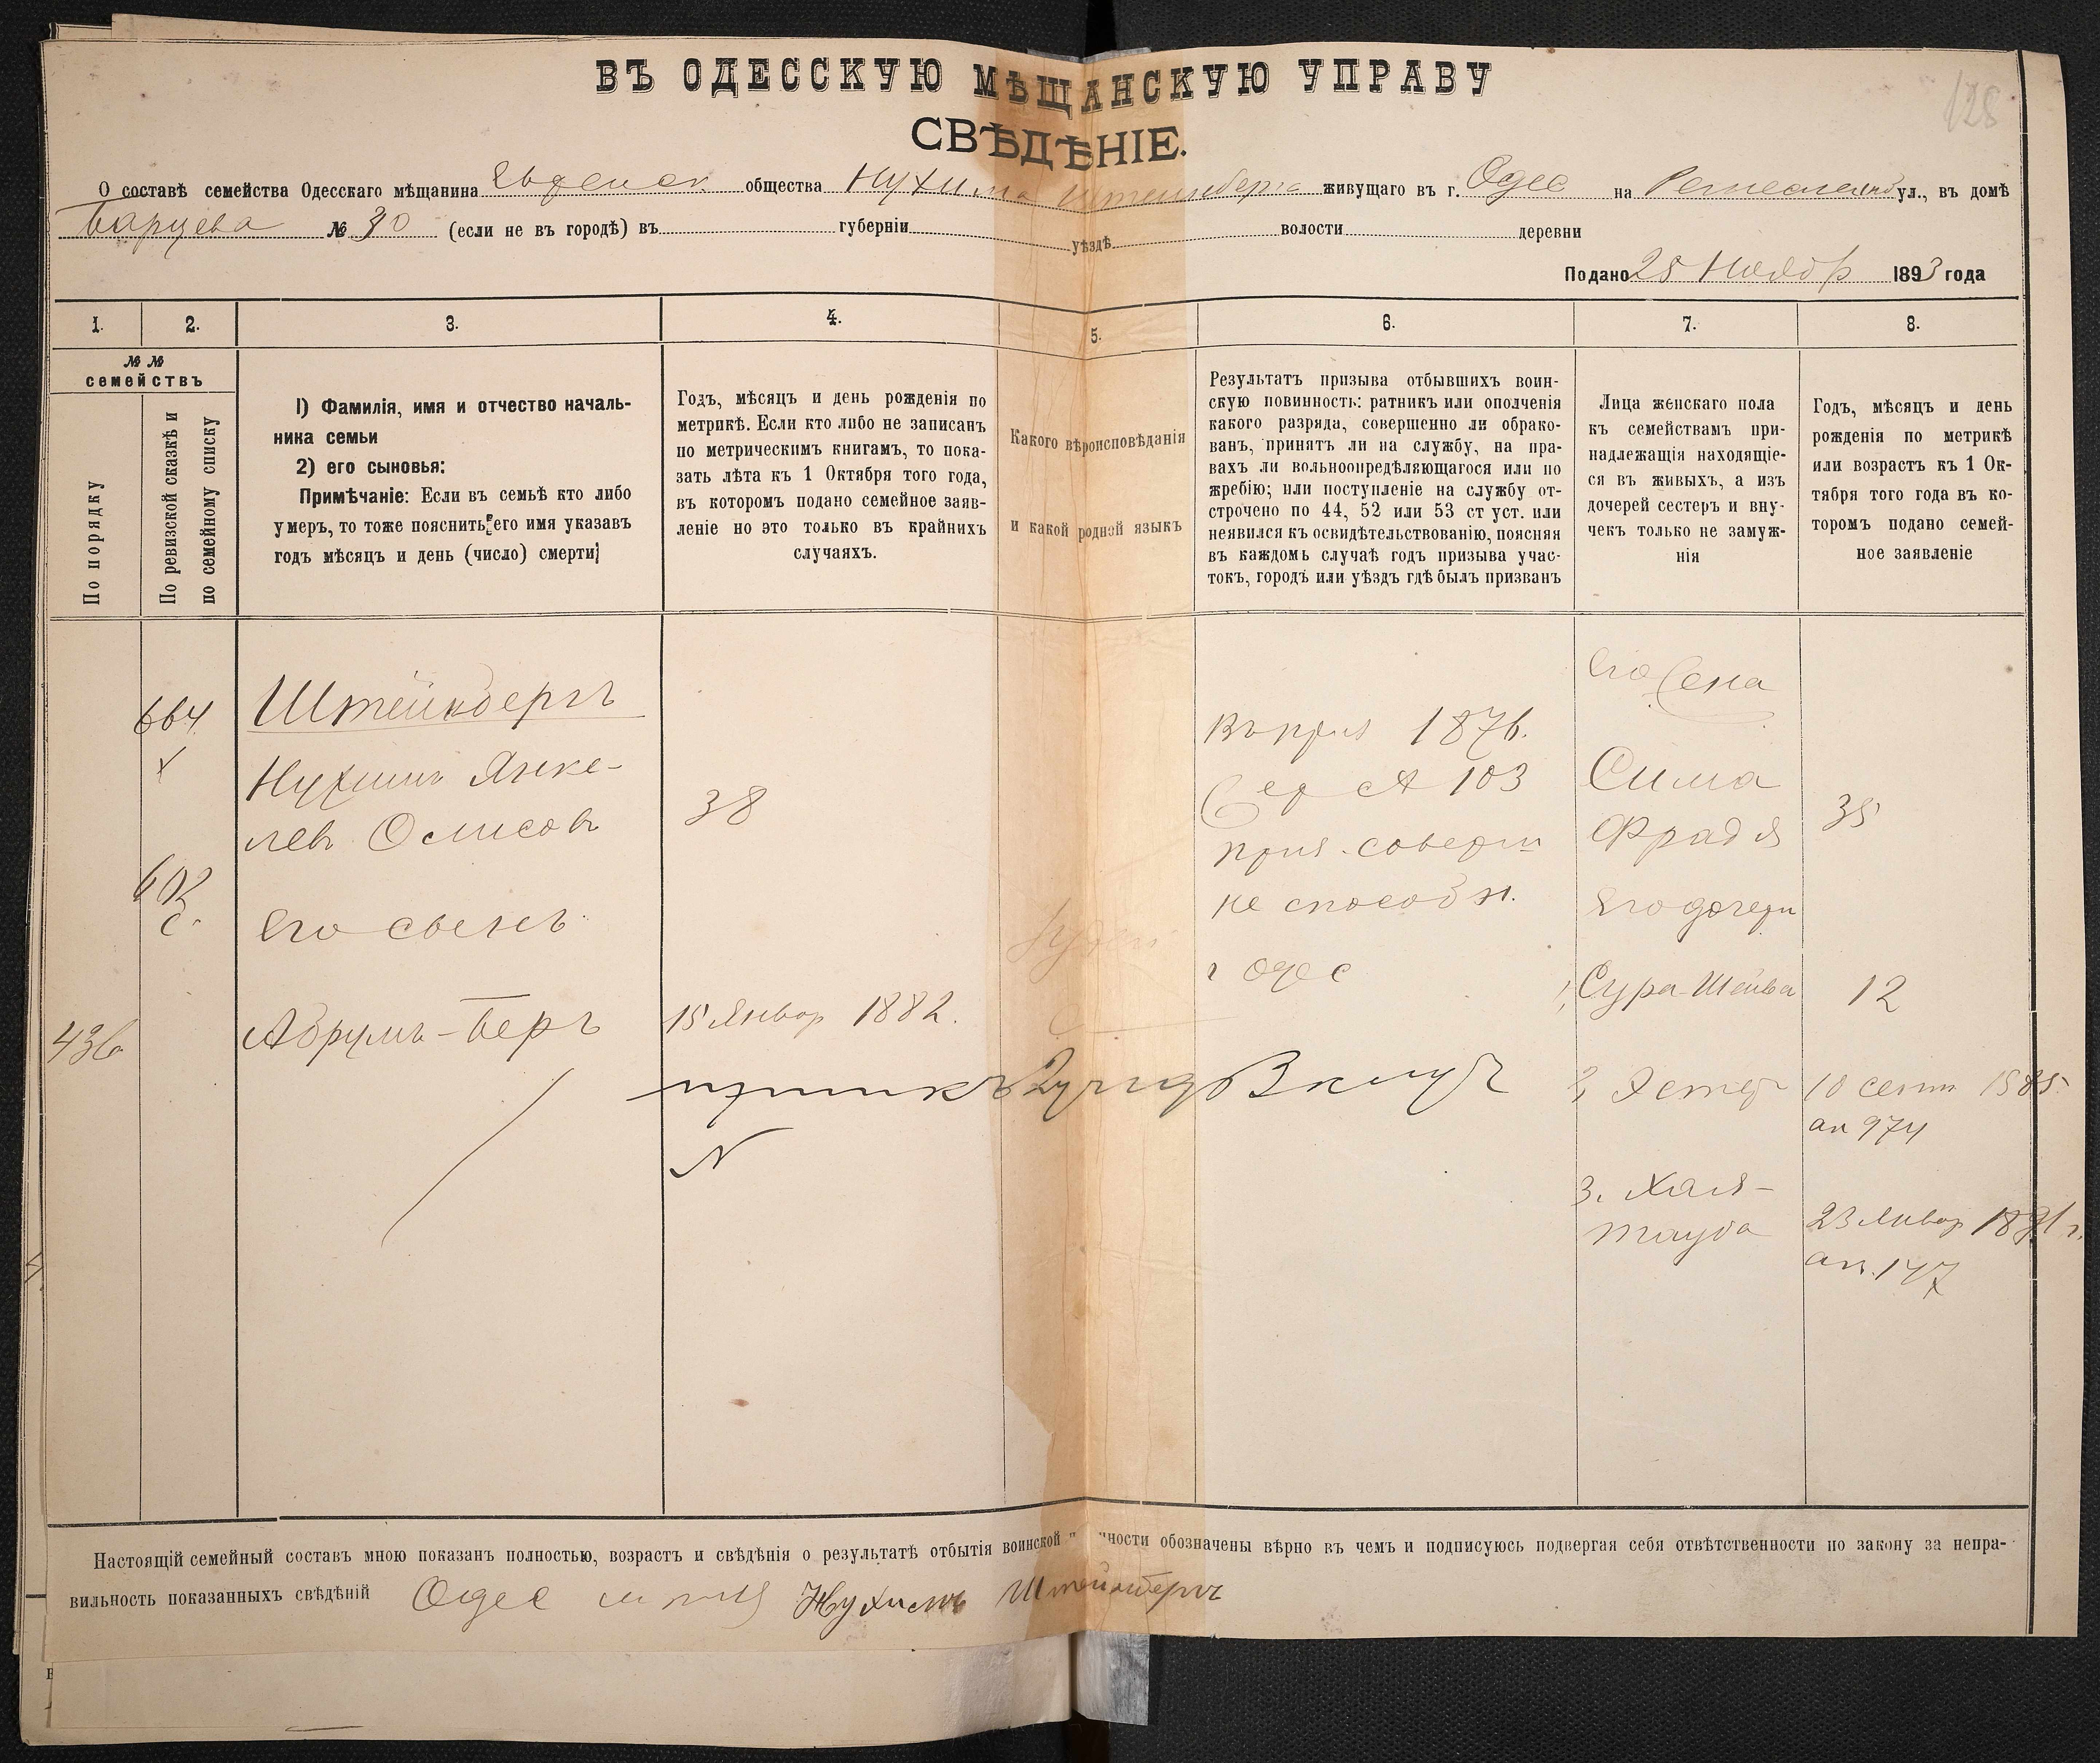 128
ВЪ ОДЕССКУЮ МѢЩАНСКУЮ УПРАВУ
СВѢДѢНІЕ.
О составѣ семейства Одесскаго мѣщанина общества Нухима Штейнберга живущаго въ г. Одес на Ремеслен ул., въ домѣ
Барцева № 30 (если не въ городѣ) въ губерніи уѣздѣ волости деревни
Подано 25 Ноябр 1893 года
1. 2. 3. 4. 5. 6. 7. 8.
№ № семействъ
По порядку
По ревизской сказкѣ и
по семейному списку
1) Фамилія, имя и отчество началь-
ника семьи
2) его сыновья:
Примѣчаніе: Если въ семьѣ кто либо
умеръ, то тоже пояснить, его имя указавъ
годъ мѣсяцъ и день (число) смерти;
Годъ, мѣсяцъ и день рожденія по
метрикѣ. Если кто либо не записанъ
по метрическимъ книгамъ, то пока-
зать лѣта къ 1 Октября того года,
въ которомъ подано семейное заяв-
леніе но это только въ крайнихъ
случаяхъ.
Какого вѣроисповѣданія
и какой родной языкъ
Результатъ призыва отбывшихъ воин-
скую повинность: ратникъ или ополченія
какого разряда, совершенно ли обрако-
ванъ, принятъ ли на службу, на пра-
вахъ ли вольноопредѣляющагося или по
жребію; или поступленіе на службу от-
строчено по 44, 52 или 53 ст уст. или
неявился къ освидѣтельствованію, поясняя
въ каждомъ случаѣ годъ призыва учас-
токъ, городъ или уѣздъ гдѣ былъ призванъ
Лица женскаго пола
къ семействамъ при-
надлежащія находящіе-
ся въ живыхъ, а изъ
дочерей сестеръ и вну-
чекъ только не замуж-
нія
Годъ, мѣсяцъ и день
рожденія по метрикѣ
или возрастъ къ 1 Ок-
тября того года въ ко-
торомъ подано семей-
ное заявленіе
664
Штейнбергъ
Нухимъ Янке-
левъ Осмисовъ
38
692
Его сынъ
436
Абрумъ-Беръ
15 Январ 1882.
1876.
103
приз. соверш
не способн.
г Одес
Его Жена
Сима
Фрадя
35
Его дочери
1, Сура-Шейва
12
2, Эстер
10 сент 1885
ак 974
3. Хая-
Тауба
23 Январ 1891 г.
ак. 147
Настоящій семейный составъ мною показанъ полностью, возрастъ и свѣдѣнія о результатѣ отбытія воинской ности обозначены вѣрно въ чемъ и подписуюсь подвергая себя отвѣтственности по закону за непра-
вильность показанныхъ свѣдѣній Одес Нухимъ Штейнбергъ